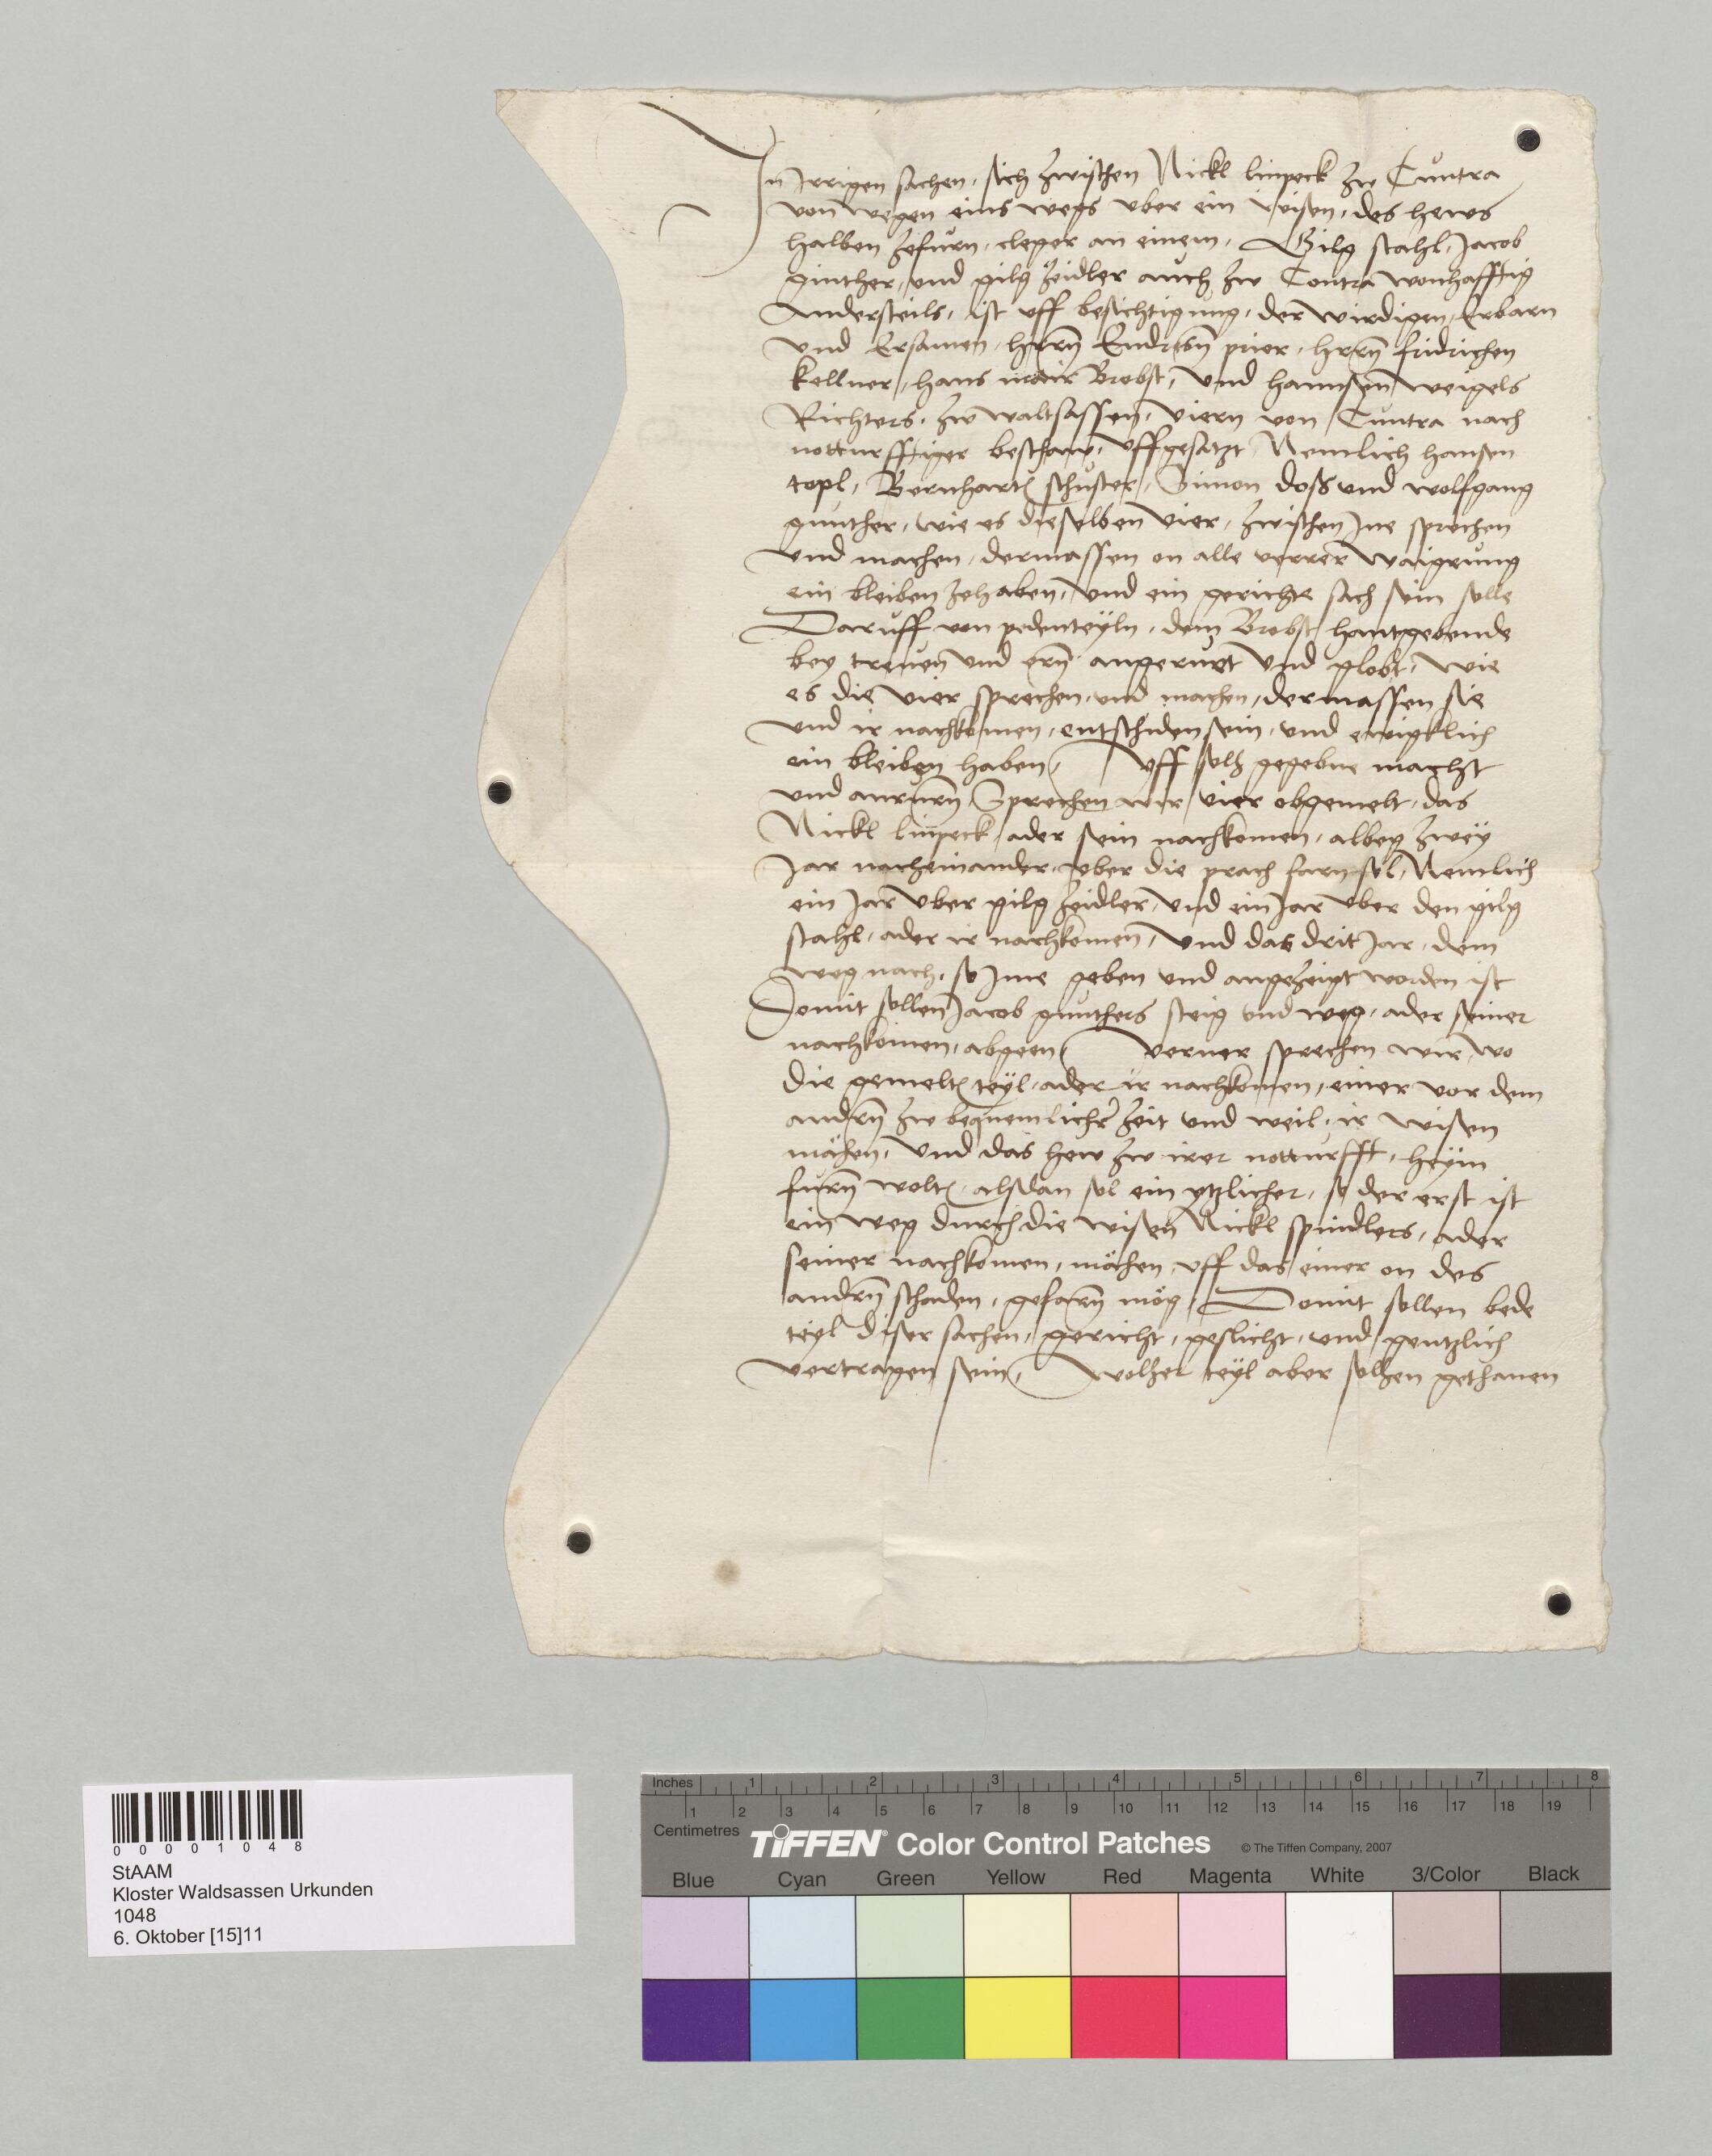 In Irrigen sachen, sich zwischen Nickl linpeck zw Cuntra
von wegen eins wegs vber ein wisen, des hews
halben zefurn, cleger an einem, Gilg stahl, Jacob
ginther, vnd gilg zeidler auch zw Contra wonhafftig
Andersteils, ist vff besichtigung, der wirdigen, Erbarn
vnd Ersamen, hern Endresn prior, hern fridrichen
kellner, hans mair Brobst, vnd hannsen weigels
Richters, zw waltsassen, viern von Cuntra nach
notturfftiger beschaw, vffgesatzt Nemlich hansen
topl, Bernhart schuster, Simon doss vnd wolfgang
gunther, wie es dieselben vier, zwischen Ine sprechen
vnd machen, dermassen on alle verrer waigrung
ein bleiben zehaben, vnd ein gerichte sach sein solle
Daruff von peden teyln, dem Brobst hantgebende
bey trewen vnd ern angerurt vnd globt, wie
es die vier sprechen, vnd machen, dermassen sie
vnd ir nachkomen, entschiden sein, vnd ewigklich
ein bleiben haben, vff solh gegebne macht
vnd anrurn, Sprechen wir vier obgemelt, das
Nickl linpeck, ader sein nachkomen, albeg zwey
Jar nacheinander, vber die prach farn sol, Nemlich
ein Jar vber gilg zeidler, vnd ein Jar vber den gilg
stahl, ader ir nachkomen, vnd das drit Jar, dem
weg nach, so Ime geben vnd angezeigt worden ist
Domit sollen Jacob gunthers steig vnd weg, ader seiner
nachkomen, abgeen, verner sprechen wir, wo
die gemelt teyl, ader ir nachkomen, einer vor dem
andern zw bequemlicher zeit vnd weil, ir wisen
mähen, vnd das hew zw irer notturfft, heym
furn wolt, alsdan sol ein ytzlicher, so der erst ist
ein weg durch die wisen Nickl spindlers, ader
seiner nachkomen, mähen, vff das einer on des
andern schaden, gefarn mög, Domit sollen bede
teyl diser sachen, gericht, geslicht, vnd gentzlich
vertragen sein, welher teyl aber solhen gethanen
0 0 0 0 1 0 4 8
StAAM
Kloster Waldsassen Urkunden
1048
6. Oktober [15]11
Inches 1 2 3 4 5 6 7 8
1 2 3 4 5 6 7 8 9 10 11 12 13 14 15 16 17 18 19
Centimetres
TIFFEN® Color Control Patches © The Tiffen Company, 2007
Blue Cyan Green Yellow Red Magenta White 3/Color Black